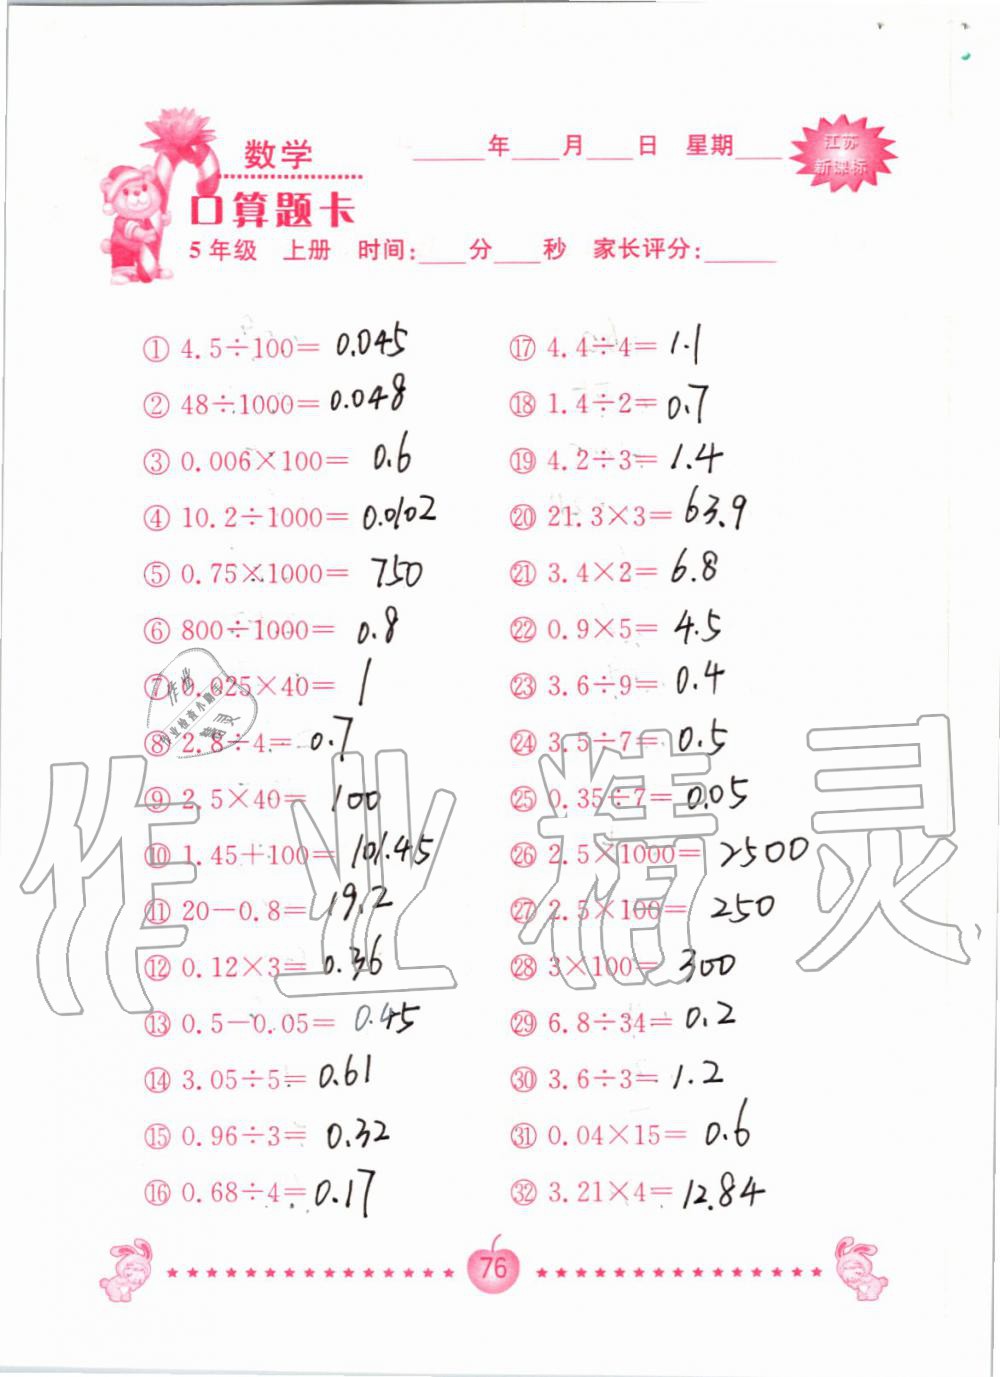 数学
____年____月____日 星期____
江苏
新课标
口算题卡
5年级 上册 时间:____分____秒 家长评分:______
① 4.5÷100= 0.045
② 48÷1000= 0.048
③ 0.006×100= 0.6
④ 10.2÷1000= 0.0102
⑤ 0.75×1000= 750
⑥ 800÷1000= 0.8
⑦ 0.025×40= 1
⑧ 2.8÷4= 0.7
⑨ 2.5×40= 100
⑩ 1.45+100= 101.45
⑪ 20-0.8= 19.2
⑫ 0.12×3= 0.36
⑬ 0.5-0.05= 0.45
⑭ 3.05÷5= 0.61
⑮ 0.96÷3= 0.32
⑯ 0.68÷4= 0.17
⑰ 4.4÷4= 1.1
⑱ 1.4÷2= 0.7
⑲ 4.2÷3= 1.4
⑳ 21.3×3= 63.9
㉑ 3.4×2= 6.8
㉒ 0.9×5= 4.5
㉓ 3.6÷9= 0.4
㉔ 3.5÷7= 0.5
㉕ 0.35÷7= 0.05
㉖ 2.5×1000= 2500
㉗ 2.5×100= 250
㉘ 3×100= 300
㉙ 6.8÷34= 0.2
㉚ 3.6÷3= 1.2
㉛ 0.04×15= 0.6
㉜ 3.21×4= 12.84
作业精灵
76